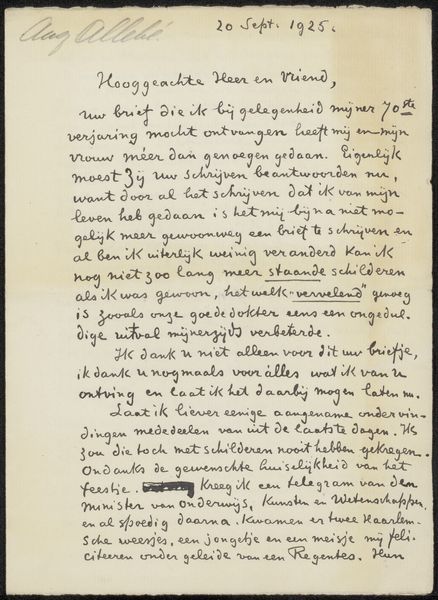 Aug Allebé.
20 Sept. 1925.
Hooggeachte Heer en Vriend,
Uw brief die ik bij gelegenheid mijner 70ste
verjaring mocht ontvangen heeft mij en mijn
vrouw méér dan genoegen gedaan. Eigenlijk
moest zij uw schrijven beantwoorden nu,
want door al het schrijven dat ik van mijn
leven heb gedaan is het mij bijna niet mo-
gelijk meer gewoonweg een brief te schrijven en
al ben ik uiterlijk weinig veranderd kan ik
nog niet zoo lang meer staande schilderen
als ik was gewoon, het welk "vervelend" genoeg
is zooals onze goede dokter eens een ongedul-
dige uitval mijnerzijds verbeterde.
Ik dank u niet alleen voor dit uw briefje,
ik dank u nogmaals voor àlles wat ik van u
ontving en laat ik het daarbij mogen laten nu.
Laat ik liever eenige aangename ondervin-
dingen mededeelen van uit de laatste dagen. Ik
zou die toch met schilderen nooit hebben gekregen.
Ondanks de gewenschte huiselijkheid van het
feestje. Kreeg ik een telegram van den
minister van onderwijs, Kunsten en Wetenschappen,
en al spoedig daarna. Kwamen er twee Haarlem-
sche weesjes, een jongetje en een meisje mij feli-
citeeren onder geleide van een Regentes. Hun